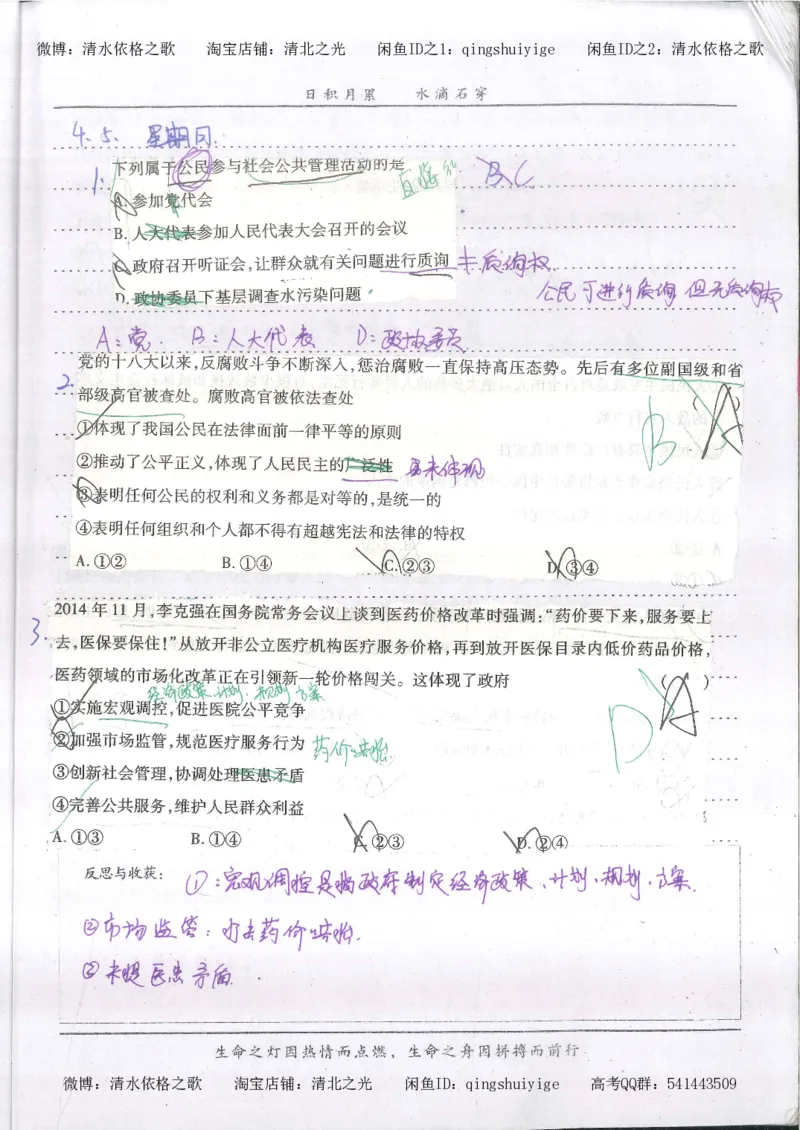 微博：清水依格之歌 淘宝店铺：清北之光 闲鱼ID之1：qingshuiyige 闲鱼ID之2：清水依格之歌
日积月累 水滴石穿
4.5. 星期日
1. 下列属于公民参与社会公共管理活动的是 B、C
A.参加党代会
B.人大代表参加人民代表大会召开的会议
C.政府召开听证会,让群众就有关问题进行质询 非质询权
公民可进行质询 但无质询权
D.政协委员下基层调查水污染问题
A：党. B：人大代表 D：政协委员
党的十八大以来,反腐败斗争不断深入,惩治腐败一直保持高压态势。先后有多位副国级和省
2. 部级高官被查处。腐败高官被依法查处 ( )
B A
①体现了我国公民在法律面前一律平等的原则
②推动了公平正义,体现了人民民主的广泛性 并未体现
③表明任何公民的权利和义务都是对等的,是统一的
④表明任何组织和个人都不得有超越宪法和法律的特权
A.①② B.①④ C.②③ D.③④
2014年11月,李克强在国务院常务会议上谈到医药价格改革时强调:“药价要下来,服务要上
3. 去,医保要保住!”从放开非公立医疗机构医疗服务价格,再到放开医保目录内低价药品价格,
医药领域的市场化改革正在引领新一轮价格闯关。这体现了政府 ( )
D A
经济政策、计划、规划、方案
①实施宏观调控,促进医院公平竞争
②加强市场监管,规范医疗服务行为
③创新社会管理,协调处理医患矛盾
④完善公共服务,维护人民群众利益
A.①③ B.①④ C.②③ D.②④
反思与收获： ①：宏观调控是指政府制定经济政策、计划、规划、方案.
②市场监管：
③未提医患矛盾.
生命之灯因热情而点燃，生命之舟因拼搏而前行
微博：清水依格之歌 淘宝店铺：清北之光 闲鱼ID：qingshuiyige 高考QQ群：541443509